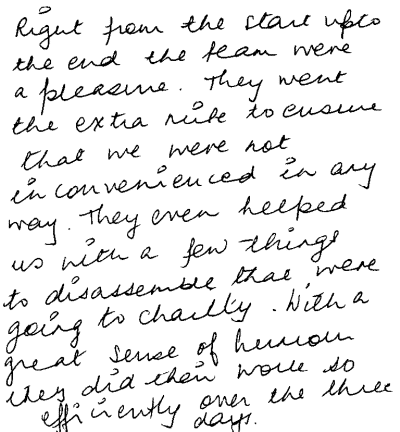 Right from the start upto
the end the team were
a pleasure. They went
the extra mile to ensure
that we were not
inconvenienced in any
way. They even helped
us with a few things
to disassemble that were
going to charity. With a
great sense of humour
they did their work so
efficiently over the three
days.